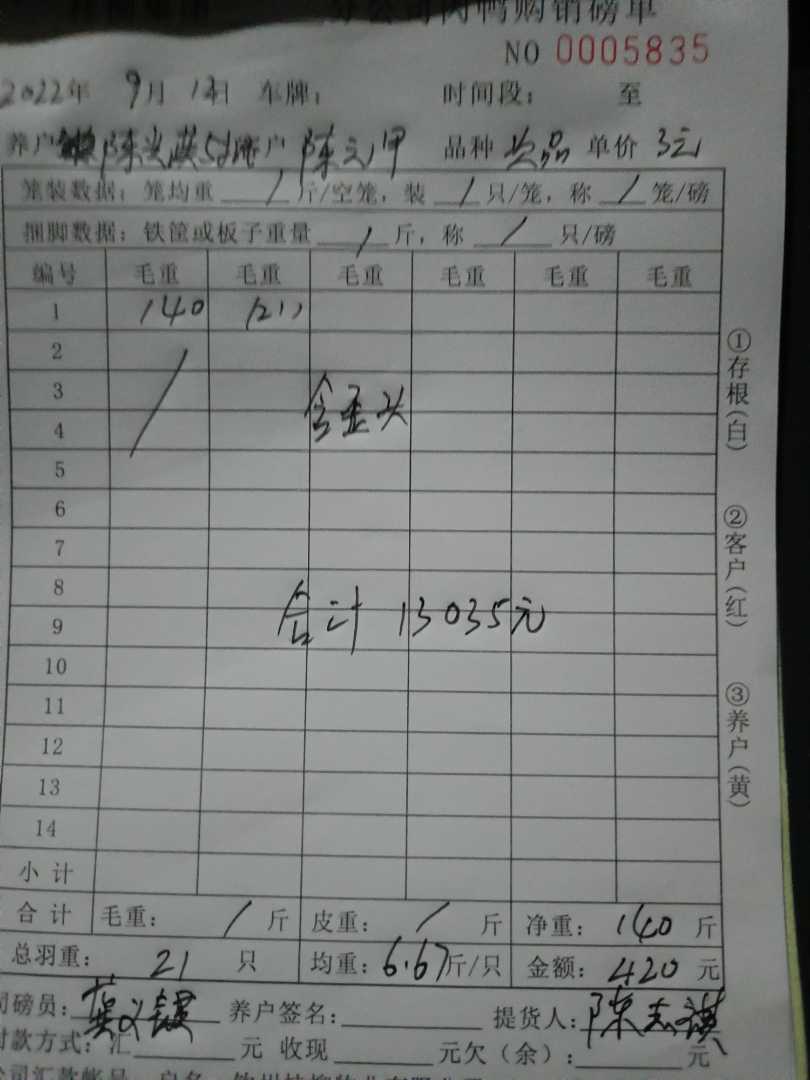 分公司肉鸭购销磅单
NO 0005835
2022年 9月 13日 车牌： 时间段： 至
养户 陈 户 陈元甲 品种 次品 单价 3元
笼装数据：笼均重 / 斤/空笼，装 / 只/笼，称 / 笼/磅
捆脚数据：铁筐或板子重量 / 斤，称 / 只/磅
编号 毛重 毛重 毛重 毛重 毛重 毛重
1 140 (21)
2
3 含歪头
4
5
6
7
8
合计 13035元
9
10
11
12
13
14
小计
合计 毛重： / 斤 皮重： / 斤 净重： 140 斤
总羽重： 21 只 均重：6.67斤/只 金额：420 元
司磅员： 养户签名： 提货人：陈志祺
付款方式：汇 元 收现 元欠（余）： 元
公司汇款帐号 户名
①存根(白)
②客户(红)
③养户(黄)